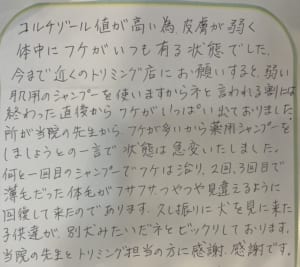 コルチゾール値が高い為、皮膚が弱く
体中にフケがいつも有る状態でした。
今まで近くのトリミング店にお願いすると、弱い
肌用のシャンプーを使いますからネと言われる割には
終わった直後からフケがいっぱい出ておりました。
所が当院の先生から、フケが多いから薬用シャンプーを
しましょうとの一言で状態は急変いたしました。
何と一回目のシャンプーでフケは治り、2回、3回目で
薄毛だった体毛がフサフサ、つやつや見違えるように
回復して来たのであります。久し振りに犬を見に来た
子供達が、別犬みたいだネとビックリしております。
当院の先生とトリミング担当の方に感謝、感謝です。